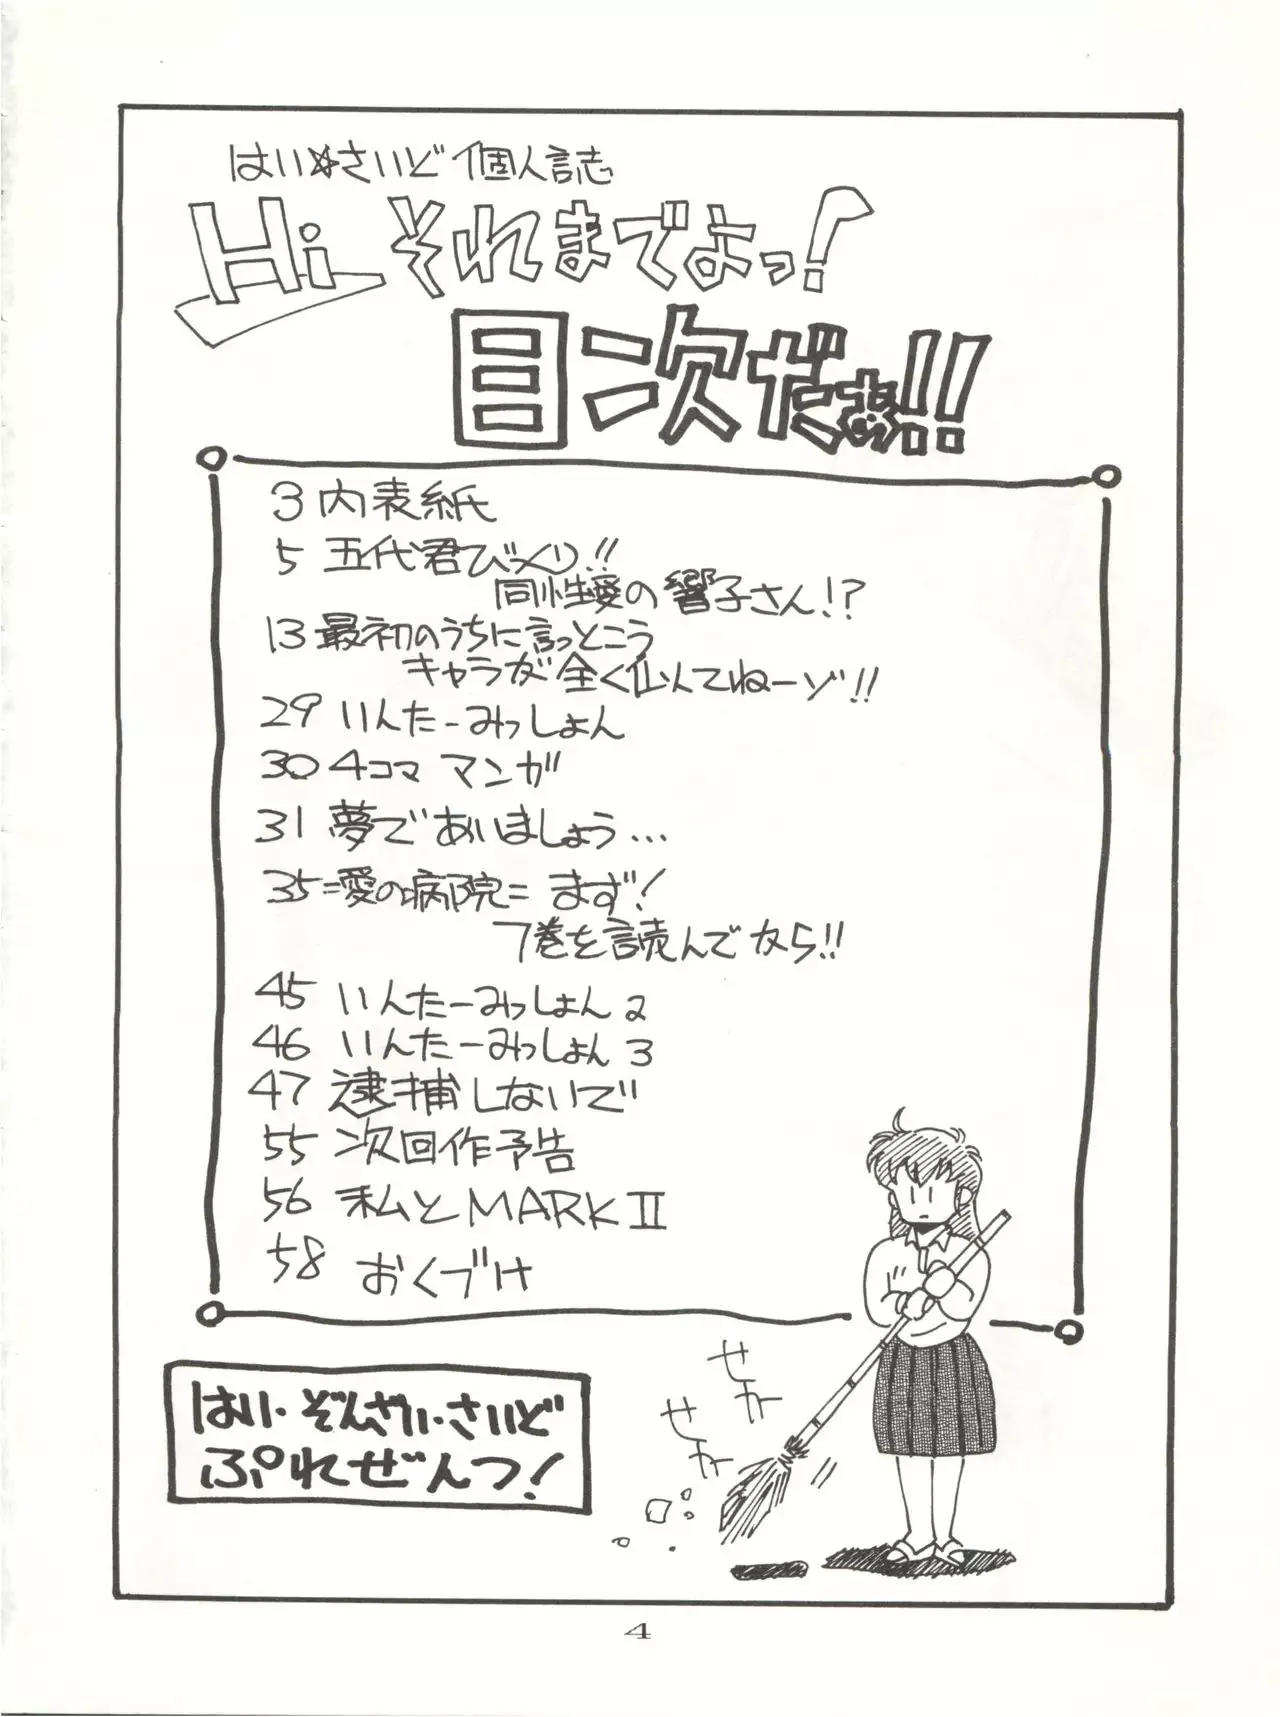 はい☆さいど個人誌
Hi それまでよっ!
目次だぁ!!
3 内表紙
5 五代君びっくり!!
同性愛の響子さん!?
13 最初のうちに言っとこう
キャラが全く似てねーゾ!!
29 いんたーみっしょん
30 4コママンガ
31 夢であいましょう…
35 =愛の病院= まず!
7巻を読んでから!!
45 いんたーみっしょん2
46 いんたーみっしょん3
47 逮捕しないで
55 次回作予告
56 私とMARKII
58 おくづけ
せか
せか
はい・ぞんざい・さいど
ぷれぜんつ!
4